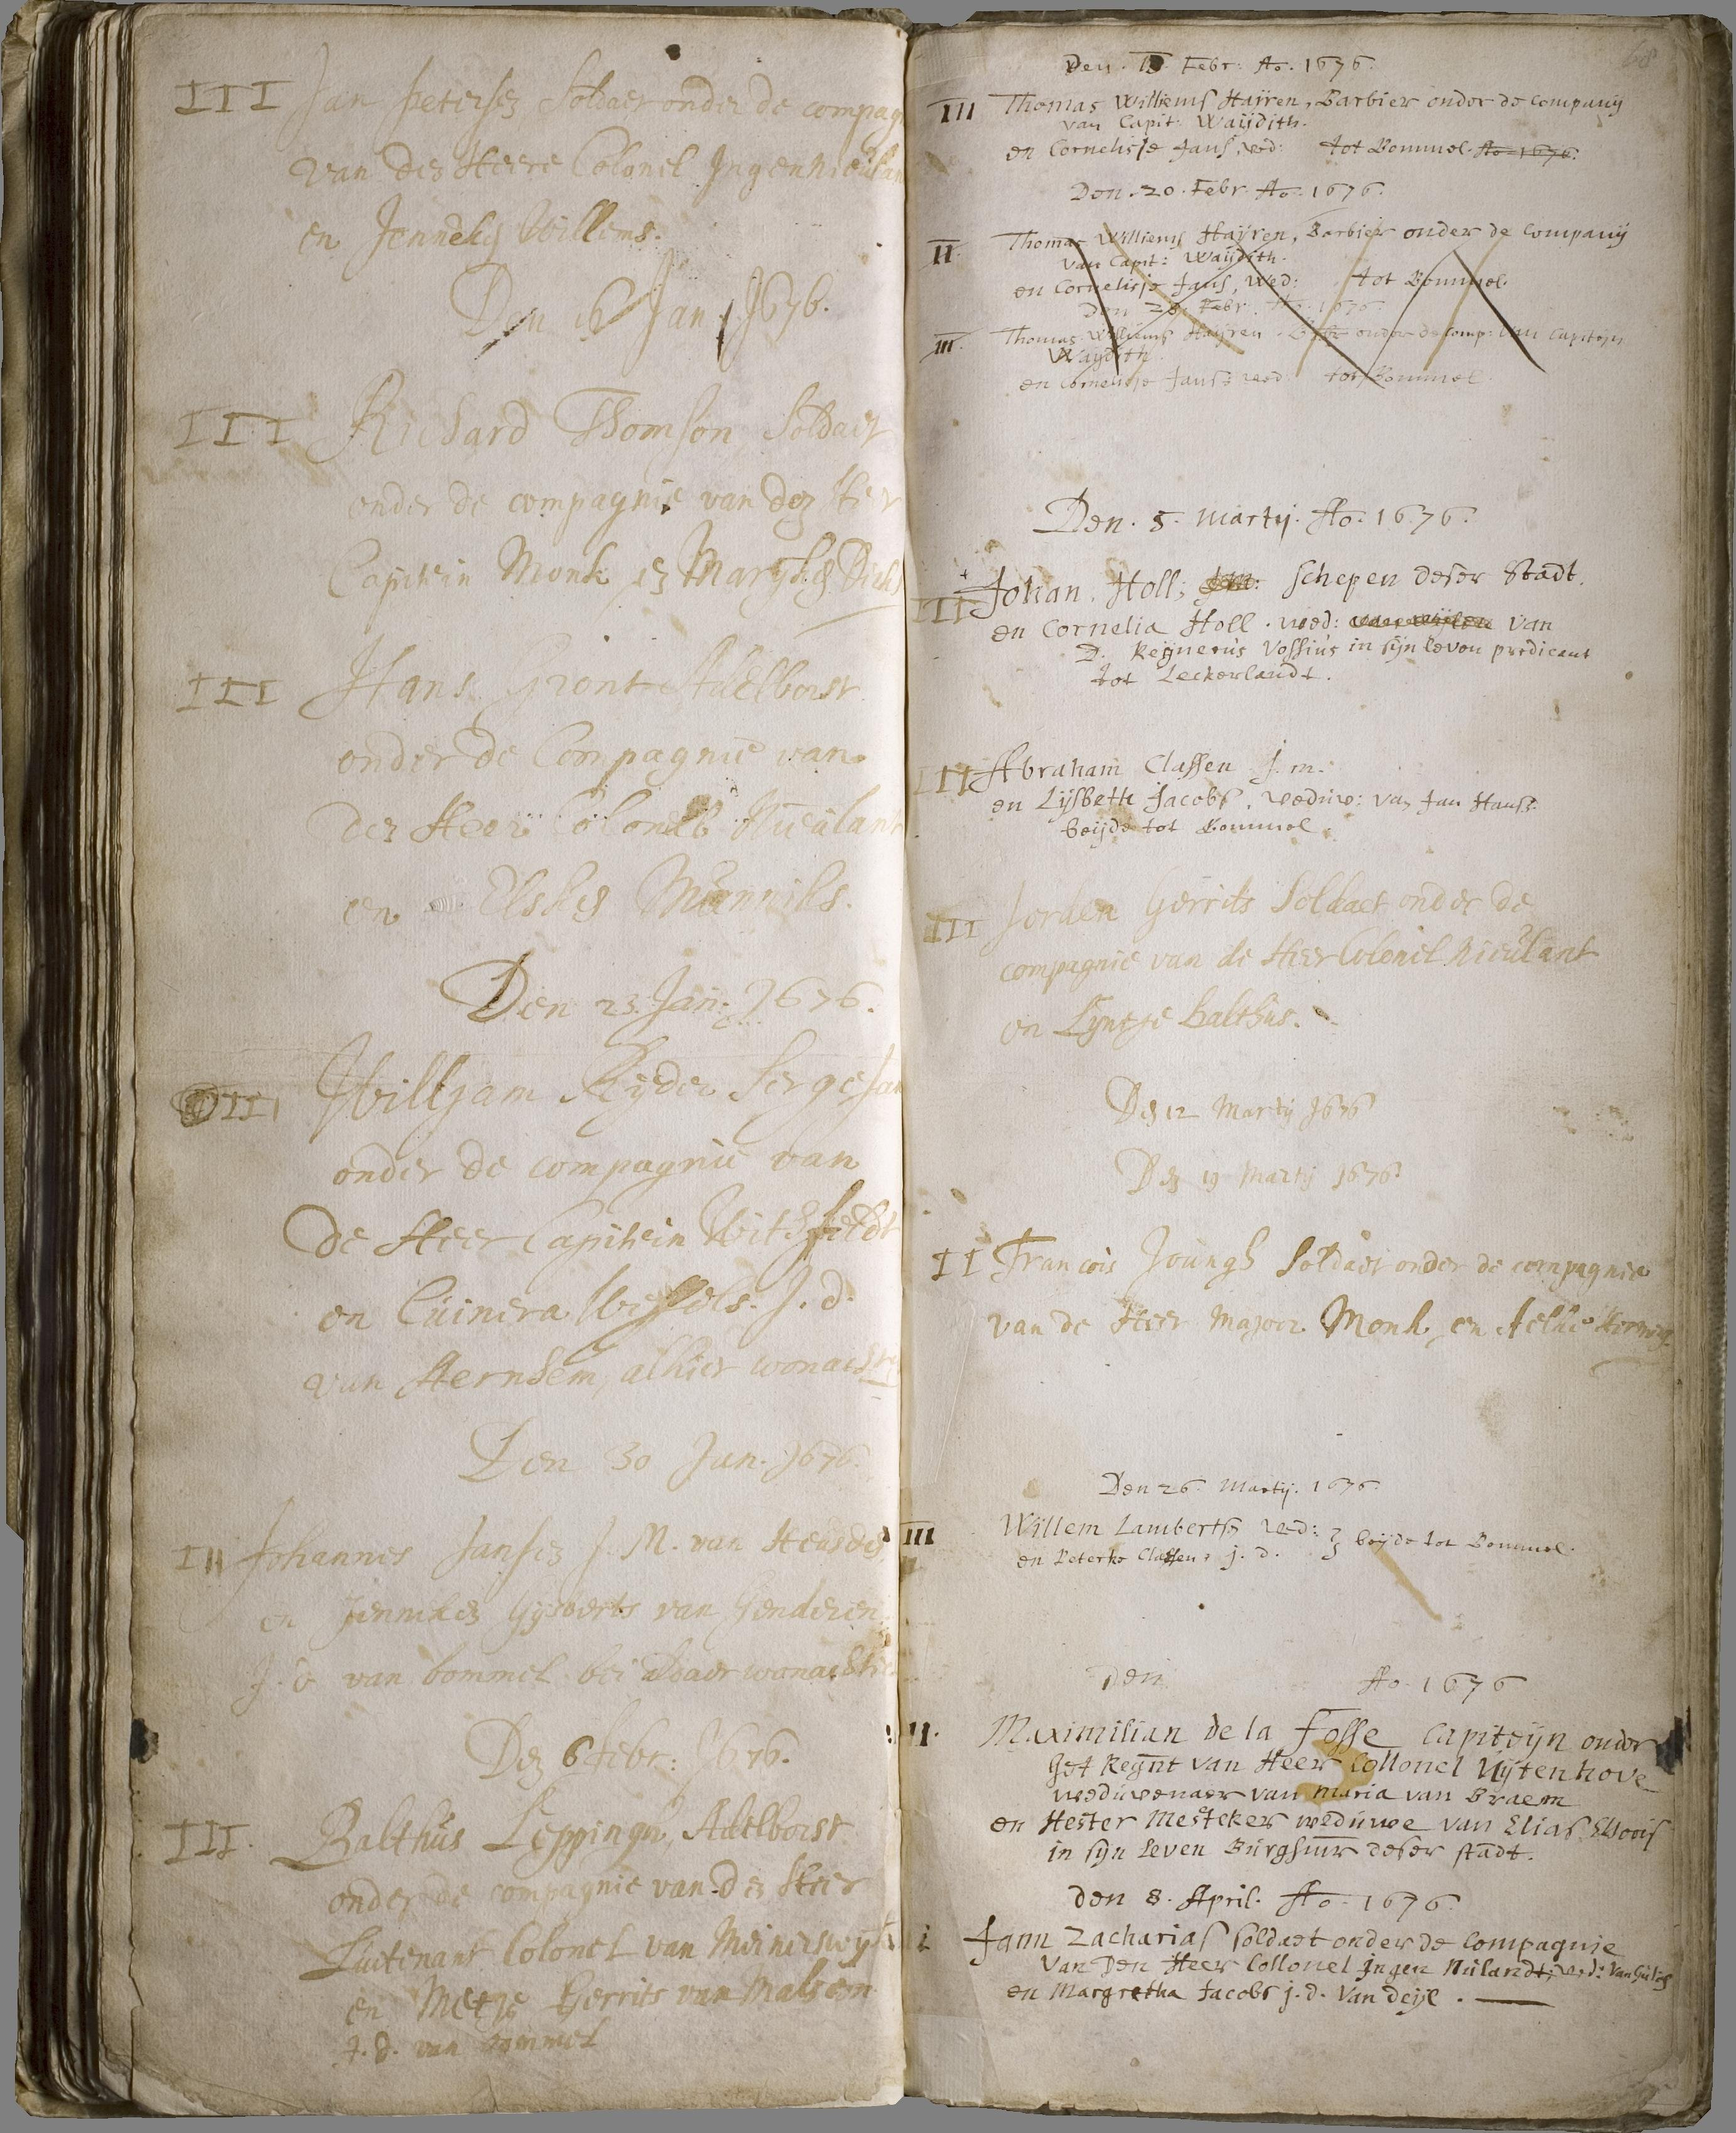 III Jan petersz Soldaet onder de compag
van dez Heere Colonel Ingenhieulan
en Jenneky Willems.
Den 16 Jan. 1676.
III Richard Thomson Soldaet
onder de compagnie van dez Heer
Capitein Monk ez Maryke Dirks
III Hans Gront Adelborst
onder de Compagnie van
dez Heer Colonel Nieulant
en Elskes Munniks.
Den 23. Jan. 1676.
III Willjam Ryder Sergejan
onder de compagnie van
de Heer Capitein Withfeldt
en Cuinera Wessels. J. d.
van Aernhem, alhier wonach
Den 30 Jan. 1676.
III Johannes Jansez J. M. van Heusde
en Jennekez Gysberts van Genderen
J. d van bommel bei daer wonachti
Dez 6 Febr: 1676.
III. Balthus Leppinge, Adelborst
onder de compagnie van dez Heer
Luitenant Colonel van Meinerswyk
en Metje Gerrits van Malsem
J. d. van bommel
68
Den. Febr: Ao. 1676.
III Thomas Williems Haÿren, Barbier onder de Companij
van Capit: Waijdith.
en Cornelisje Jans, wed: tot Bommel. Ao 1676.
Den. 20. Febr. Ao. 1676.
II Thomas Williems Haÿren, Barbier onder de Companij
van Capit: Waijdith.
en Cornelisje Jans, Wed: tot Bommel.
Den Febr. Ao. 1676.
III. Thomas Williems Haÿren onder de Comp: van Capiteyn
Waijdith.
en Cornelisje Jans wed: tot Bommel.
Den. 5. Martij. Ao. 1676.
II Johan. Holl; schepen deser Stadt.
en Cornelia Holl. wed: van wijlen van
D. Reÿnerus Vossius in sijn leven predicant
tot Leckerlandt.
III Abraham Classen J. m.
en Lijsbeth Jacobs, weduw: van Jan Hans.
beijde tot Bommel.
III Jorden Gerrits Soldaet onder de
compagnie van de Heer Colonel Nieulant
en Lyntje Balthus.
Dez 12 Martij 1676
Dez 19 Martij 1676
II Francois Joungh Soldaet onder de compagnie
van de Heer Majoor Monk, en
Den 26. Martij. 1676.
III Willem Lamberts wed: beijde tot Bommel.
en Peterke Classen, j. d.
Den Ao. 1676
II. Maximilian de la Fosse Capiteijn onder
het Regnt van Heer Collonel Uÿtenhove
weduwenaer van Maria van Braem
en Hester Mesteker weduwe van Elias
in sijn leven Burghmr deser stadt.
den 8. April. Ao. 1676.
i Jann Zacharias soldaet onder de Compagnie
Van Den Heer Collonel Ingen Nulandt, wed: van Gulick
en Margretha Jacobs j. d. Van Deijl.